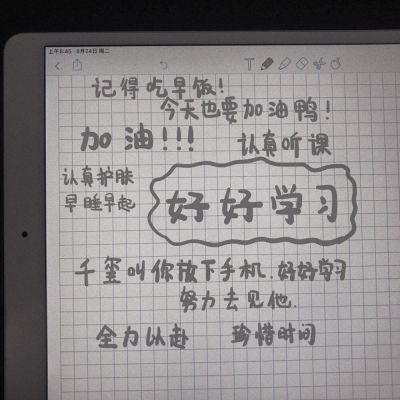 上午8:45 8月24日 周二
T
记得吃早饭!
今天也要加油鸭!
加油!!!
认真听课
认真护肤
早睡早起
好好学习
千玺叫你放下手机.好好学习
努力去见他.
全力以赴
珍惜时间